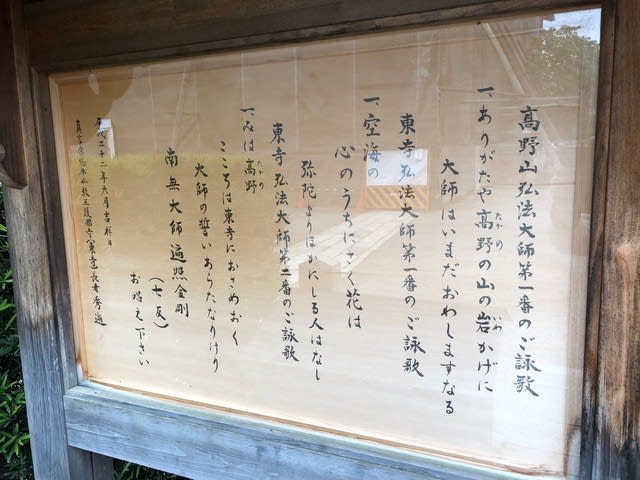 高野山弘法大師第一番のご詠歌
一、ありがたや高野の山の岩かげに
たかの
いわ
大師はいまだおわしますなる
東寺弘法大師第一番のご詠歌
一、空海の
心のうちにさく花は
弥陀よりほかにしる人はなし
東寺弘法大師第二番のご詠歌
一、みは高野
たかの
こころは東寺におさめおく
大師の誓いあらたなりけり
南無大師遍照金剛
(七反)
お唱え下さい
平成二十二年六月吉祥日
真言宗総本山教王護国寺(東寺)長者秀遍